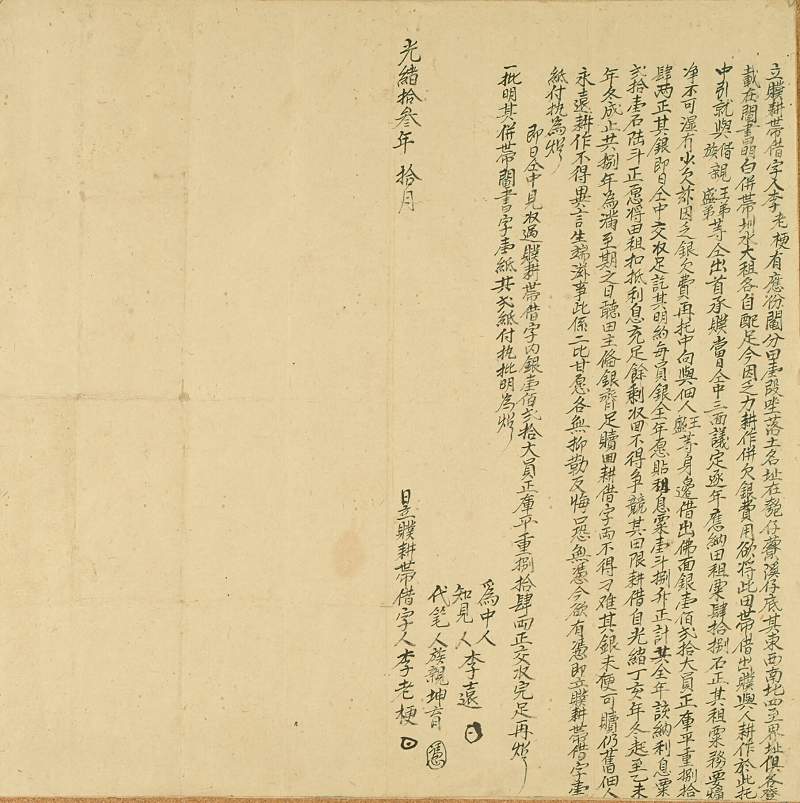 立贌耕帶借字人李老梗有應份鬮分田壹段坐落土名址在尫仔藔溪仔底其東西南北四至界址俱各登
載在鬮書昷白併帶圳水大租各自配足今因乏力耕作併欠銀費用欲將此田帶借出贌與人耕作於此托
中引就與偕族親王弟盛弟等仝出首承贌當日仝中三面議定逐年應納田租粟肆拾捌石正其租粟務要燥
净不可濕冇少欠玆因乏銀欠費再托中向與佃人王盛等身邊借出佛面銀壹佰弍拾大員正庫平重捌拾
肆両正其銀即日仝中交收足訖其明約每員銀全年愿貼租息粟壹斗捌升正計共全年該納利息粟
弍拾壹石陆斗正愿將田租扣抵利息充足餘剩收回不得争競其田限耕借自光緒丁亥年冬起至乙未
年冬成止共捌年為滿至期之日聽田主俻銀齊足贖回耕借字両不得刁难其銀未便可贖仍舊佃人
永遠耕作不得異言生端滋事此係二比甘愿各無抑勒反悔口恐無憑今欲有憑即立贌耕帶借字壹
紙付执為炤
即日仝中見收過贌耕帶借字內銀壹佰弍拾大員正庫平重捌拾肆両正交收完足再炤
一批明其併帶鬮書字壹紙共弍紙付执批明為炤
為中人
知見人李遠
代笔人族親坤育
光緒拾叁年拾月
日立贌耕帶借字人李老梗